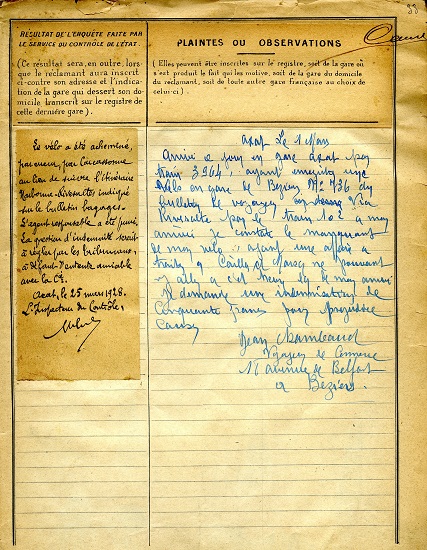 88
RÉSULTAT DE L'ENQUÊTE FAITE PAR
LE SERVICE DU CONTRÔLE DE L'ÉTAT.
(Ce résultat sera, en outre, lors
que le réclamant aura inscrit
ci-contre son adresse et l'indica-
tion de la gare qui dessert son do-
micile transcrit sur le registre de
cette dernière gare).
PLAINTES OU OBSERVATIONS
(Elles peuvent être inscrites sur le registre, soit de la gare où
s'est produit le fait qui les motive, soit de la gare du domicile
du réclamant, soit de toute autre gare française au choix de
celui-ci).
Le vélo a été acheminé,
par erreur, par Carcassonne
au lieu de suivre l'itinéraire
Narbonne-Rivesaltes indiqué
sur le bulletin bagages.
L'agent responsable a été puni.
La question d'indemnité serait
à régler par les tribunaux,
à défaut d'entente amiable
avec la Cie.
Axat, le 25 mars 1928.
L'Inspecteur du Contrôle,
Axat Le 1 Mars
Arrivé ce jour en gare Axat par
train 3964, ayant enregistré une
vélo en gare de Béziers No 736 du
bulletin, le voyage via
Rivesaltes par le train 102 a mon
arrivée je constate le manquant
de mon vélo, ayant une affaire a
traiter ne pouvant
y aller
demande une indemnisation de
Cinquante francs pour préjudice
Causé
Jean
Voyageur de Commerce
16 avenue de Belfort
a Béziers.